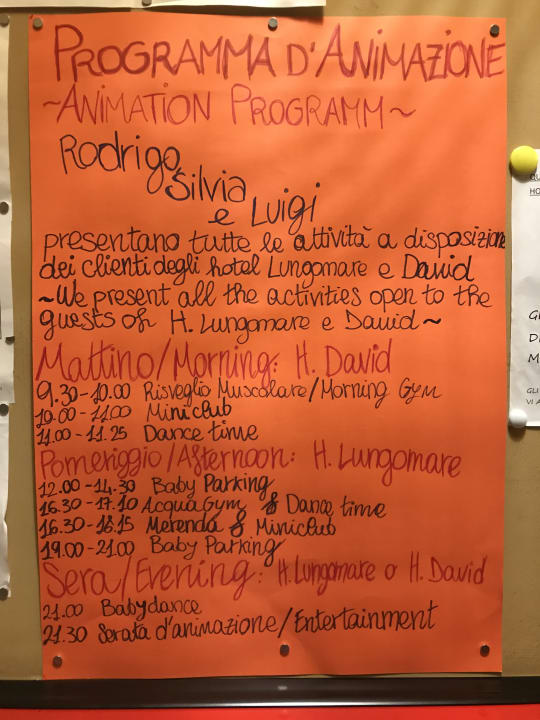 PROGRAMMA D'ANIMAZIONE
~ANIMATION PROGRAMM~
Rodrigo,
Silvia
e Luigi
presentano tutte le attività a disposizione
dei clienti degli hotel Lungomare e David
~We present all the activities open to the
guests of H. Lungomare e David~
Mattino/Morning: H. David
9.30-10.00 Risveglio Muscolare/Morning Gym
10.00-11.00 Miniclub
11.00-11.25 Dance time
Pomeriggio/Afternoon: H. Lungomare
12.00-14.30 Baby Parking
16.30-17.10 AcquaGym & Dance time
16.30-18.15 Merenda & Miniclub
19.00-21.00 Baby Parking
Sera/Evening: H. Lungomare o H. David
21.00 Babydance
21.30 Serata d'animazione/Entertainment